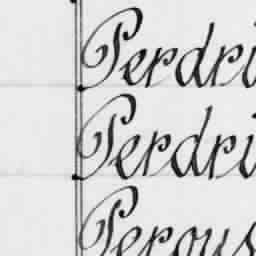 Perdri
Perdri
Perous